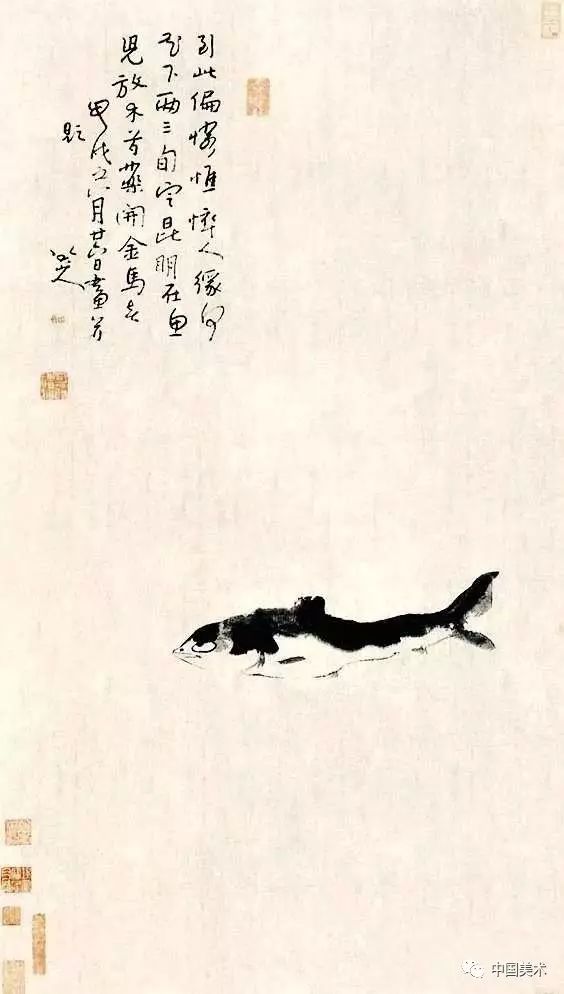 到此偏憐憔悴人緣何
花下兩三旬定昆明在魚
兒放木芍藥開金馬春
甲戌之六月廿六日畫并
題
八大山人
中国美术